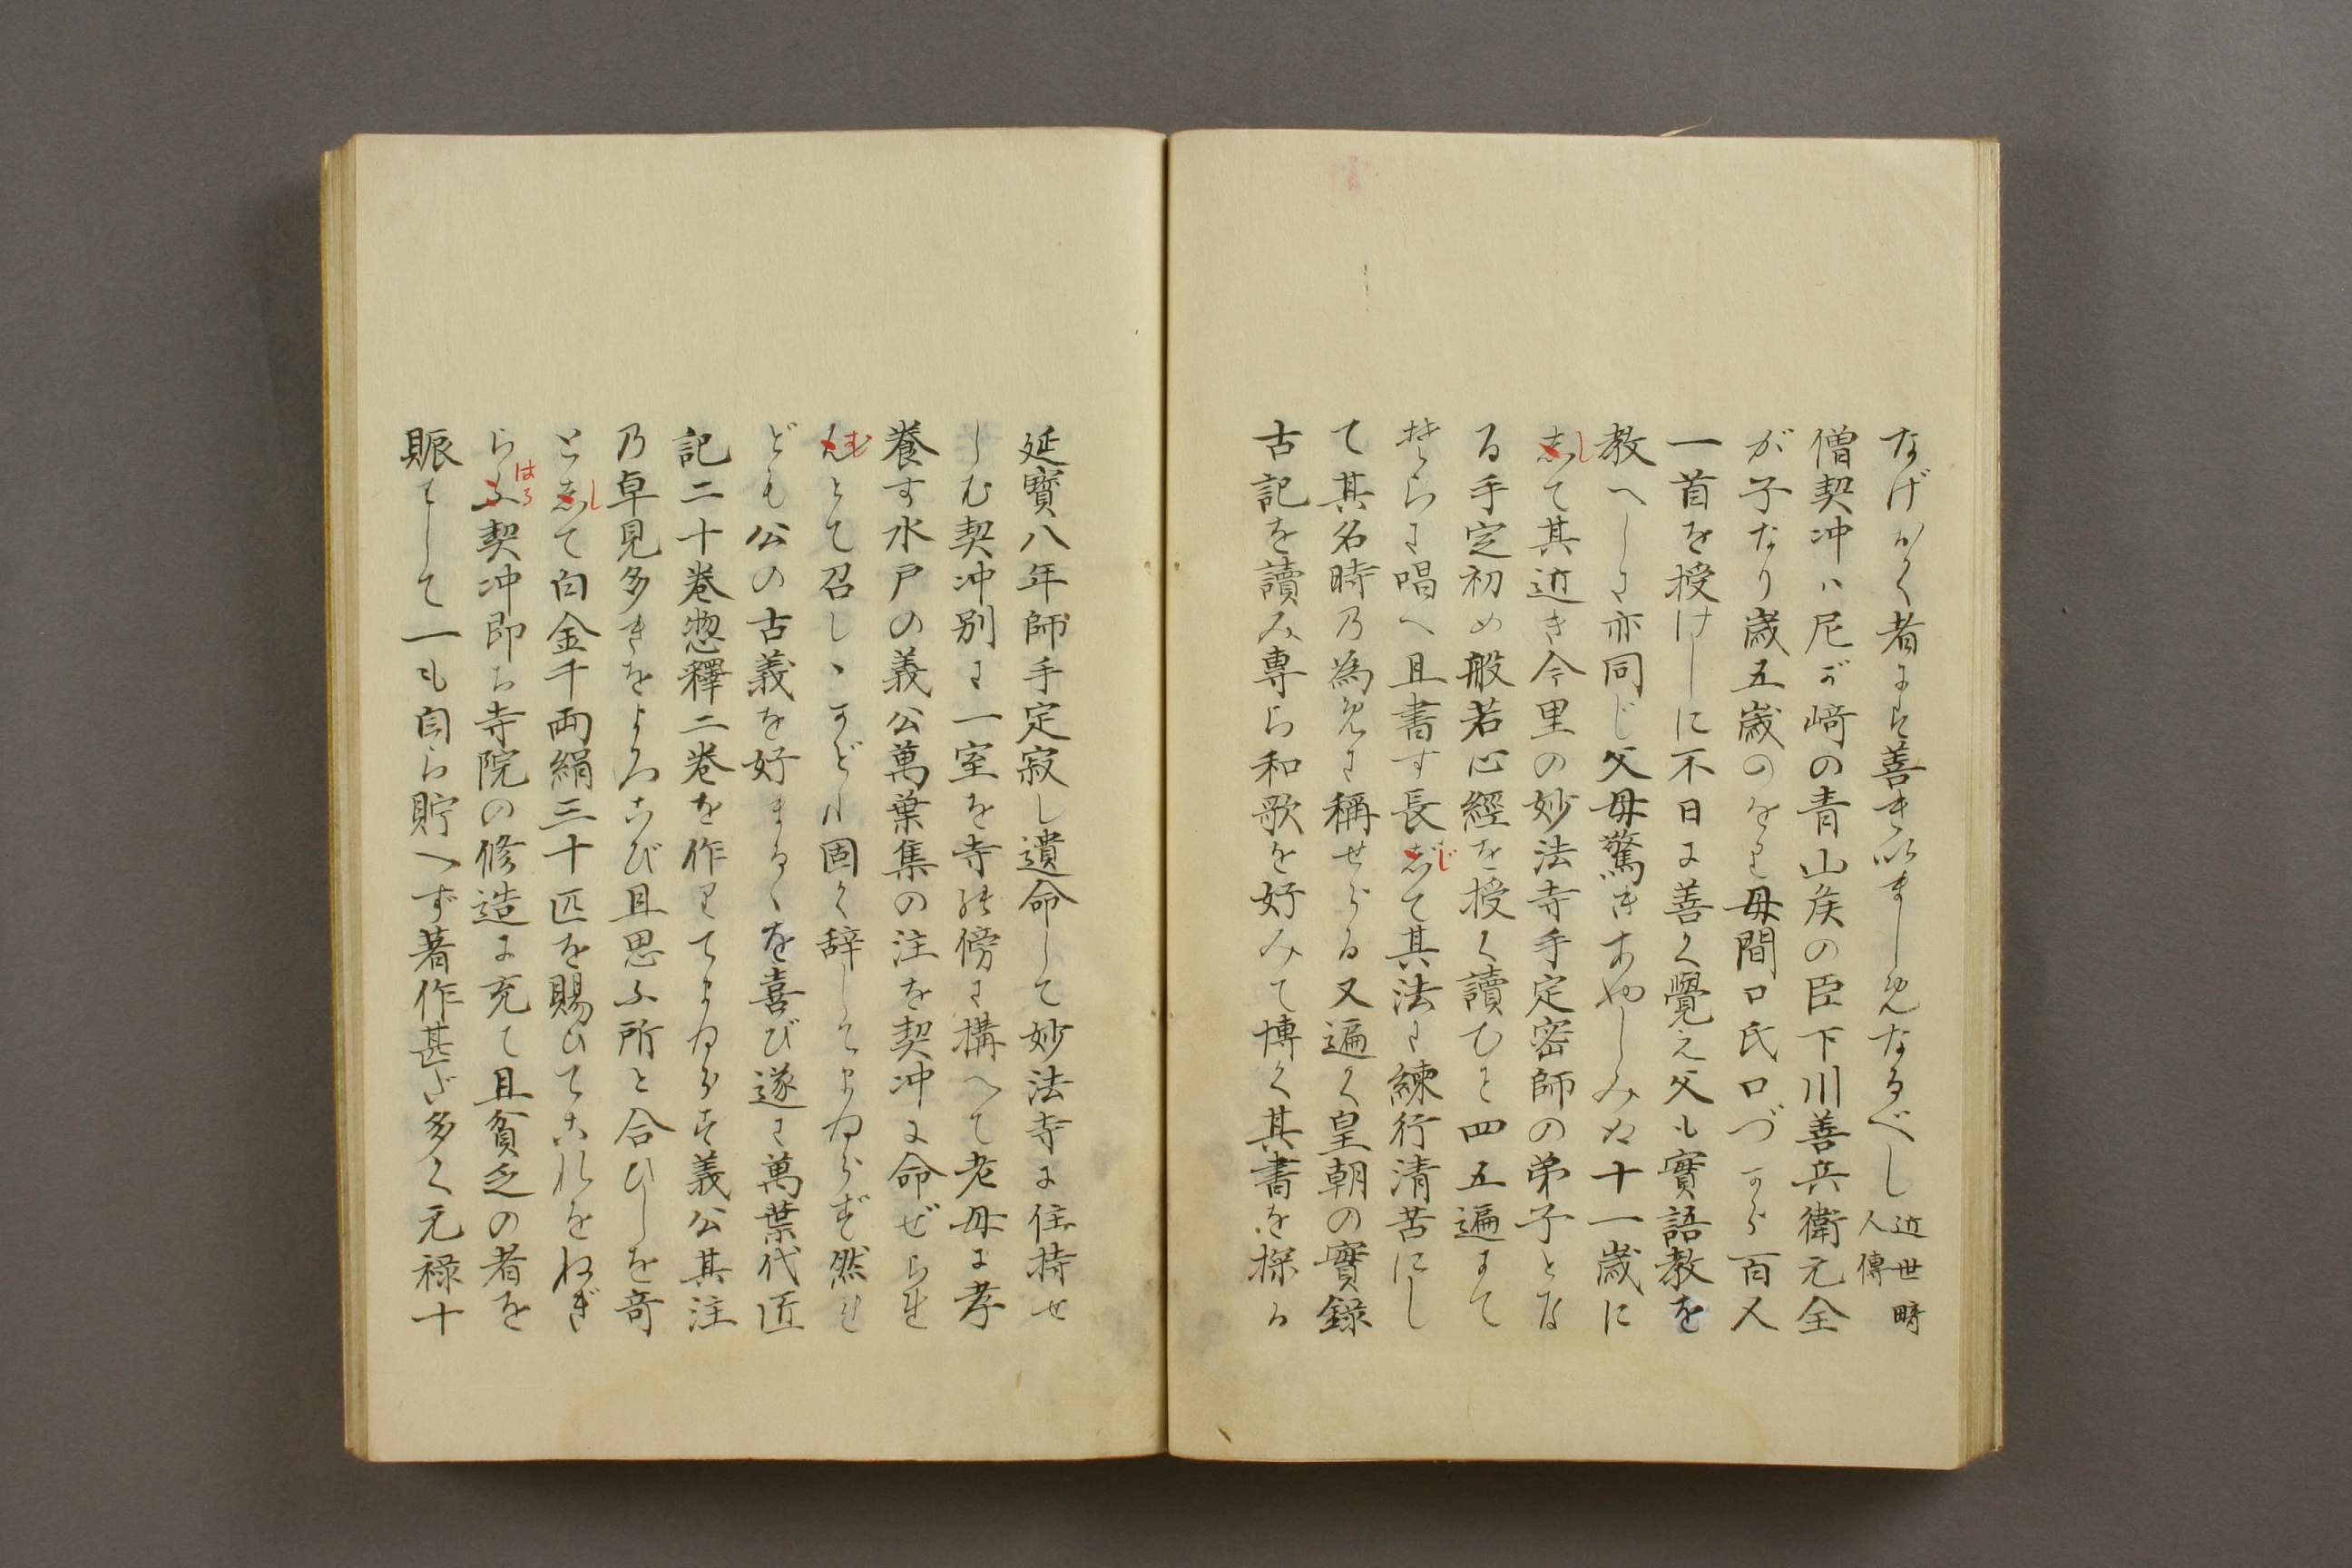 なげかく者には善きいましめなるべし 近世畸人傳
僧契冲ハ尼が﨑の青山侯の臣下川善兵衛元全
が子なり歳五歳のをり母間口氏口づから百人
一首を授けしに不日に善く覺え父も實語教を
教へしに亦同じ父母驚きあやしみぬ十一歳に
志して其近き今里の妙法寺手定密師の弟子とな
る手定初め般若心經を授く讀むこと四五遍にて
そらに唱へ且書す長志じて其法に練行清苦にし
て其名時の為めに稱せらる又遍く皇朝の實録
古記を讀み専ら和歌を好みて博く其書を探る
延寳八年師手定寂し遺命して妙法寺に住持せ
しむ契冲別に一室を寺の傍に構へて老母に孝
養す水戸の義公萬葉集の注を契冲に命ぜられ
んむとて召しゝかども固く辞してまゐらず然れ
ども公の古義を好まるゝを喜び遂に萬葉代匠
記二十巻惣釋二巻を作りてまゐらす義公其注
の卓見多きをよろこび且思ふ所と合ひしを奇
と志して白金千両絹三十匹を賜ひてこれをねぎ
らふはる契冲即ち寺院の修造に充て且貧乏の者を
賑はして一も自ら貯へず著作甚だ多く元禄十